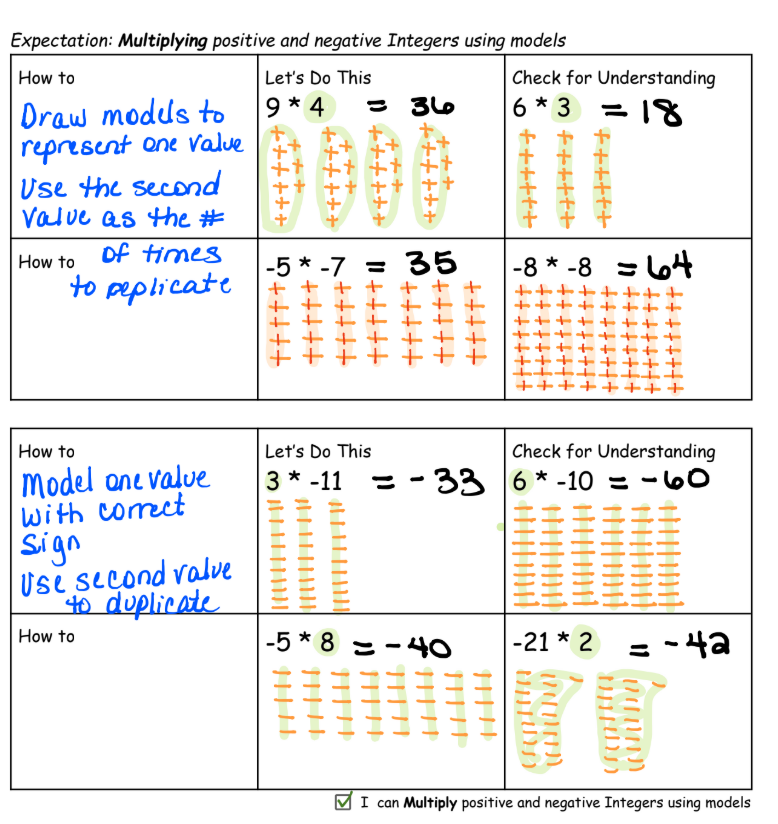 Expectation: Multiplying positive and negative Integers using models
How to
Draw models to
represent one value
Use the second
value as the #
Let's Do This
9 * 4 = 36
Check for Understanding
6 * 3 = 18
How to
of times
to replicate
-5 * -7 = 35
-8 * -8 = 64
How to
Model one value
with correct
sign
Use second value
to duplicate
Let's Do This
3 * -11 = -33
Check for Understanding
6 * -10 = -60
How to
-5 * 8 = -40
-21 * 2 = -42
I can Multiply positive and negative Integers using models